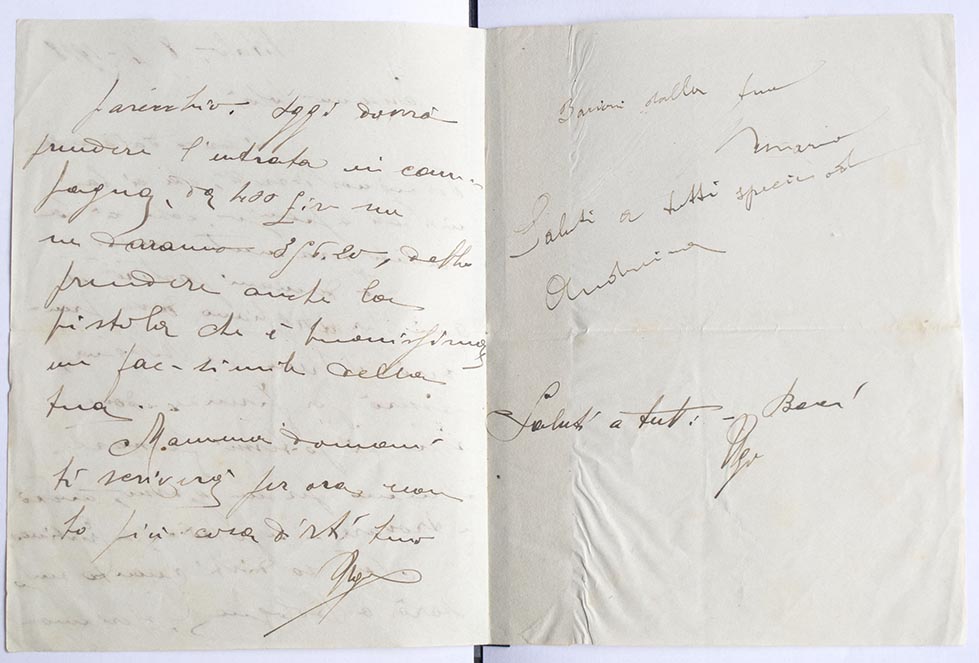 parecchio. Oggi dovrà
prendere l'entrata in cam-
pagna, da 400 Lire me
ne daranno 356.20, debbo
prendere anche la
pistola che è buonissima
un fac-simile della
tua.
Mamma domani
ti scriverà per ora non
so più cosa dirti tuo
Ugo
Bacioni dalla tua
Maria
Saluti a tutti
Saluti a tutti - Baci
Ugo